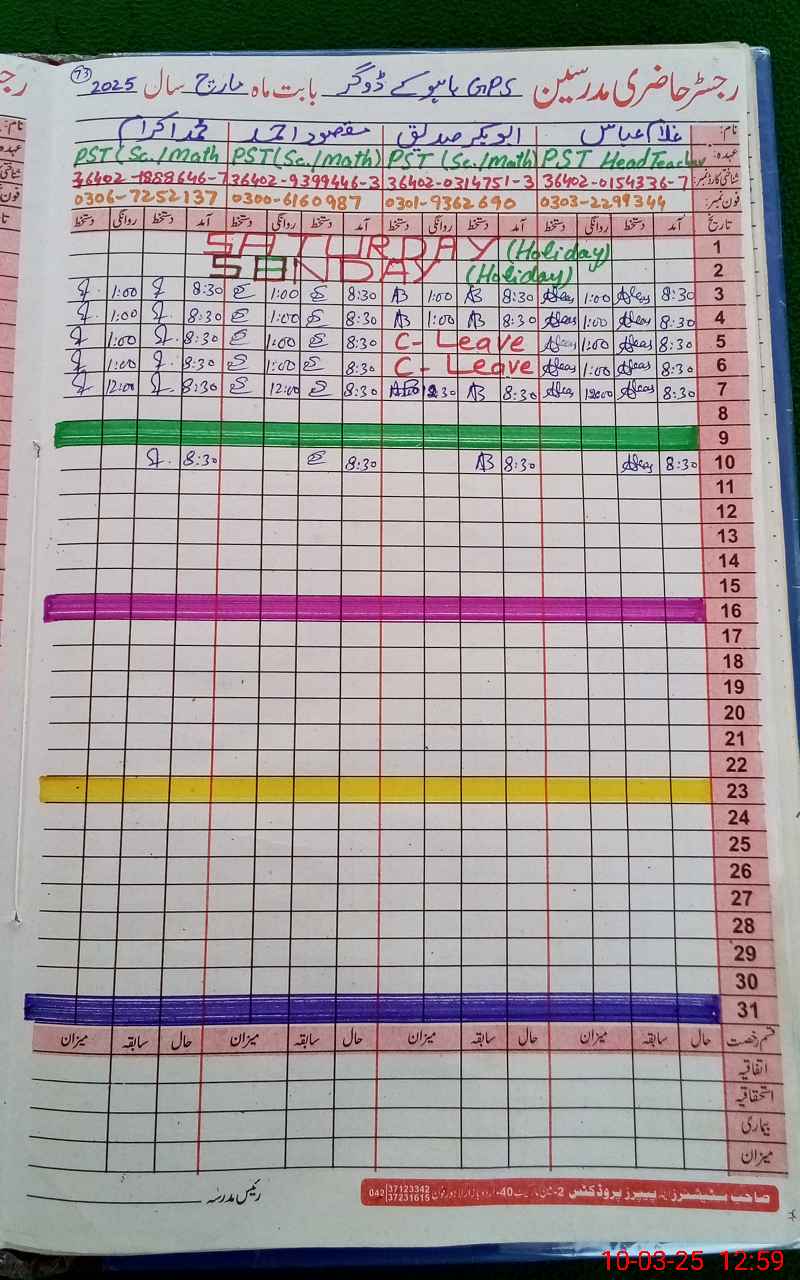 رجسٹر حاضری مدرسین GPS باہو کے ڈوگر بابت ماہ مارچ سال 2025 73
نام: غلام عباس ابوبکر صدیق مقصود احمد محمد اکرام
عہدہ: PST Head Teacher PST (Sc./Math) PST (Sc./Math) PST (Sc./Math
شناختی کارڈ نمبر: 36402-0154336-7 36402-0314751-3 36402-9399446-3 36402-1888646-7
فون نمبر: 0303-2299344 0301-9362690 0300-6160987 0306-7252137
تاریخ آمد دستخط روانگی دستخط آمد دستخط روانگی دستخط آمد دستخط روانگی دستخط آمد دستخط روانگی دستخط
1 SATURDAY (Holiday)
2 SUNDAY (Holiday)
3 8:30 1:00 8:30 AB 1:00 AB 8:30 1:00 8:30 1:00
4 8:30 1:00 8:30 AB 1:00 AB 8:30 1:00 8:30 1:00
5 8:30 1:00 C-Leave 8:30 1:00 8:30 1:00
6 8:30 1:00 C-Leave 8:30 1:00 8:30 1:00
7 8:30 12:00 8:30 AB 8:30 12:00 8:30 12:00
8
9
10 8:30 8:30 AB 8:30 8:30
11
12
13
14
15
16
17
18
19
20
21
22
23
24
25
26
27
28
29
30
31
قسم رخصت حال سابقہ میزان حال سابقہ میزان حال سابقہ میزان حال سابقہ میزان
اتفاقیہ
استحقاقیہ
بیماری
میزان
رئیس مدرسہ
صاحب سٹیشنرز اینڈ پیپرز پروڈکٹس 2- 40-اردو بازار لاہور فون 042 37123342
37231615
10-03-25 12:59